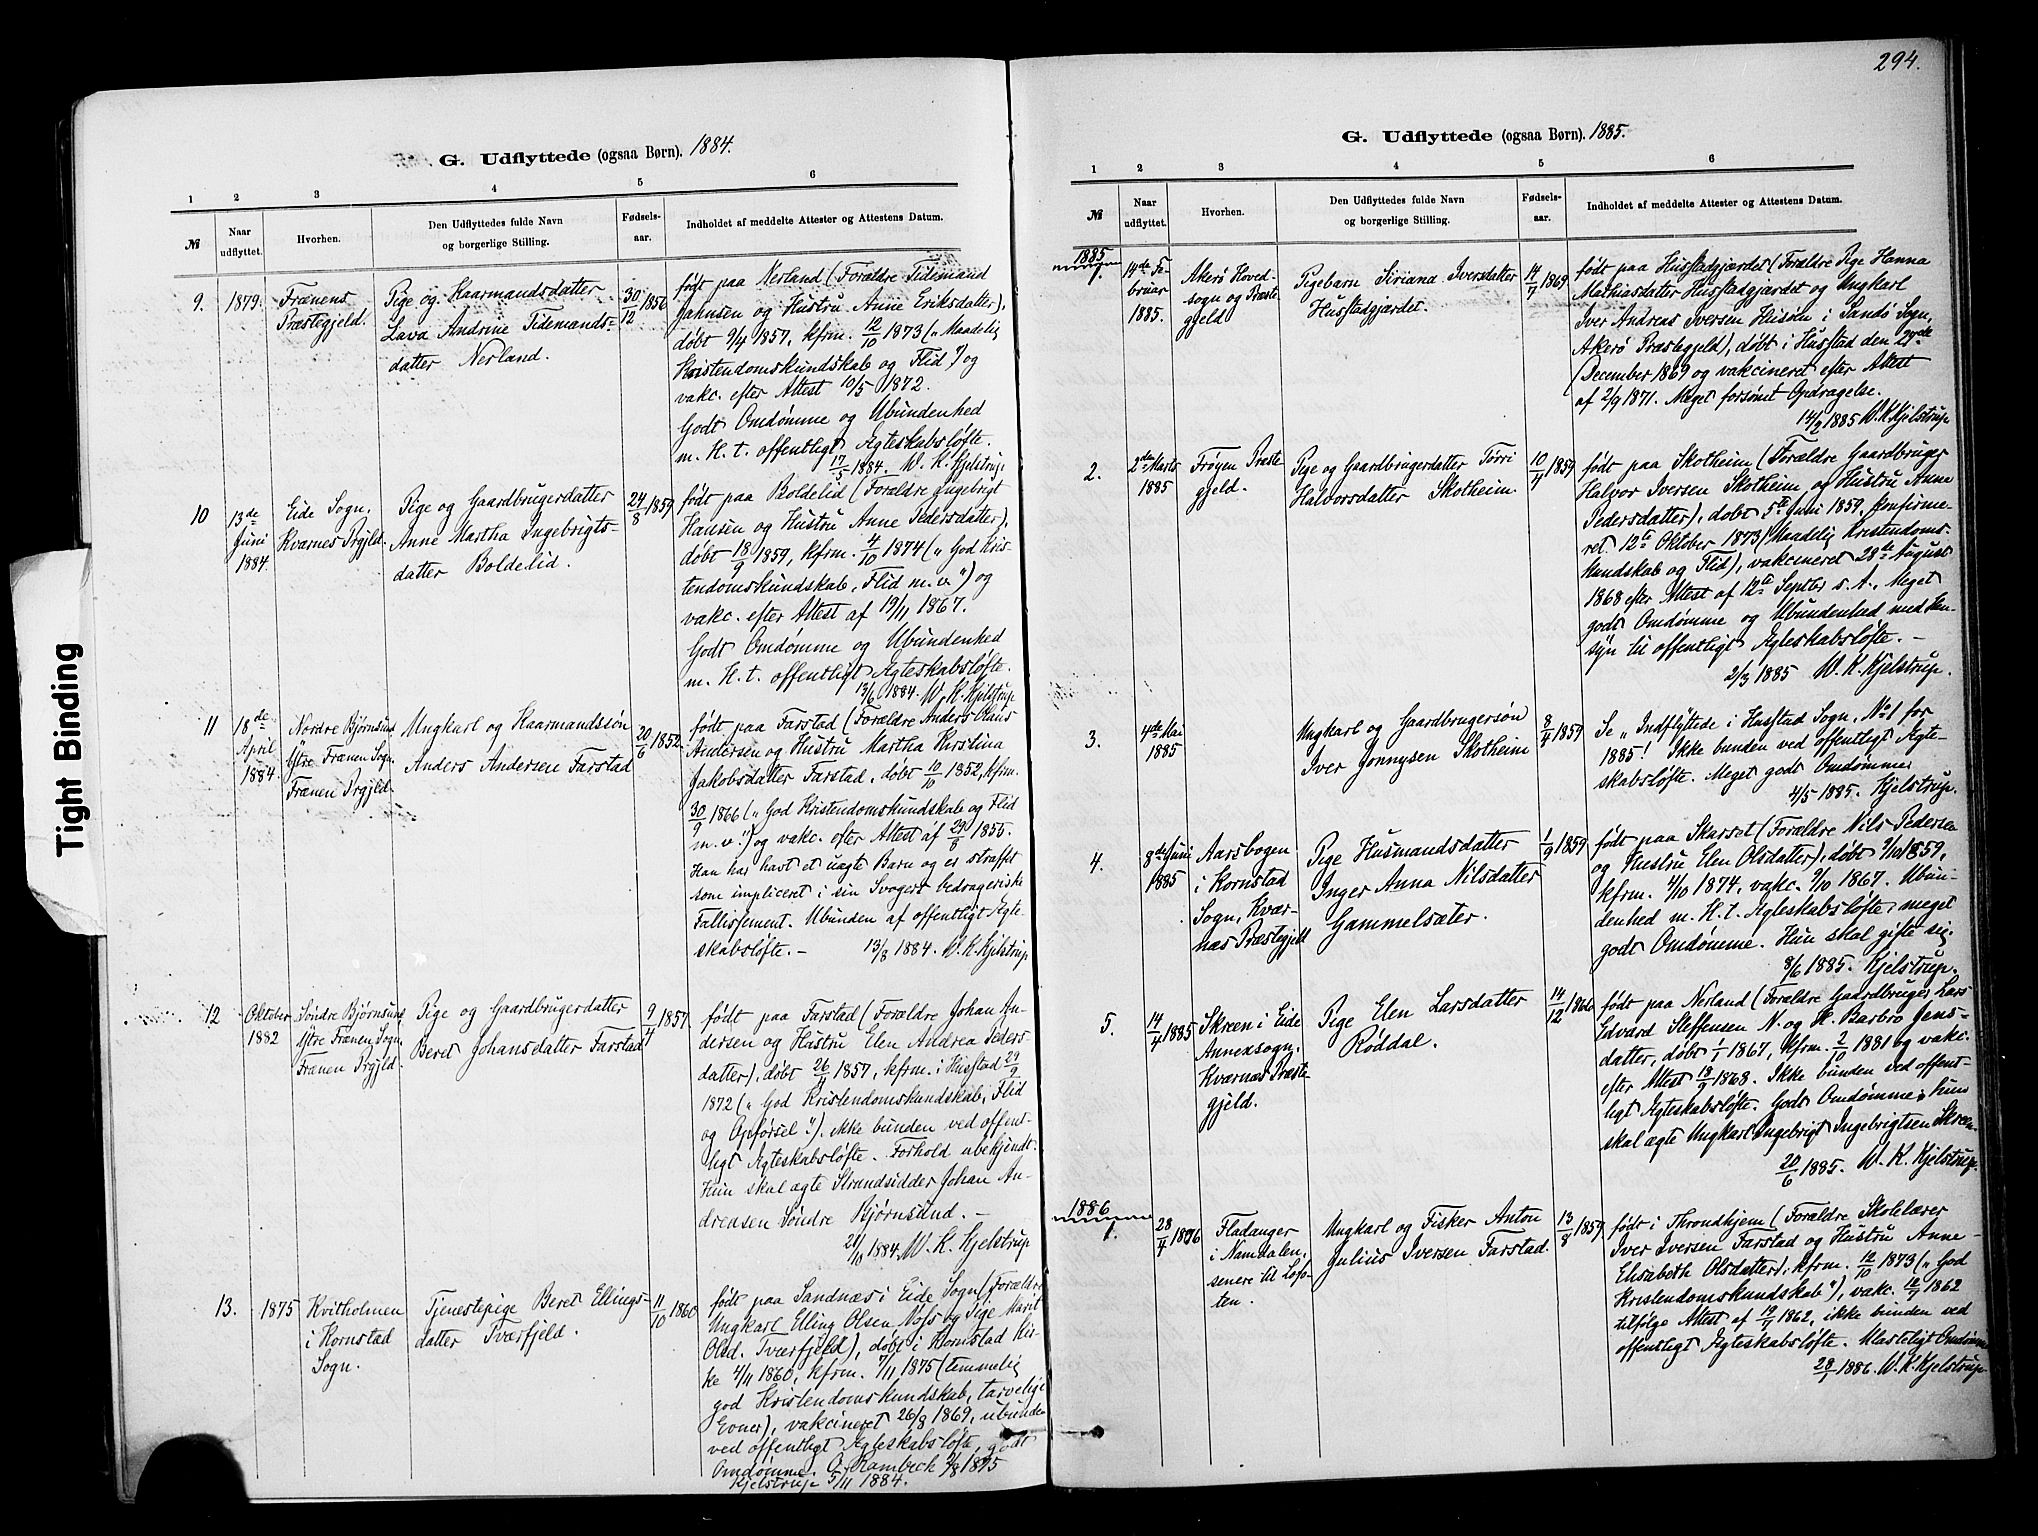 294.
G. Udflyttede (ogsaa Børn). 1884.
1 2 3 4 5 6
№
Naar
udflyttet.
Hvorhen.
Den Udflyttedes fulde Navn
og borgerlige Stilling.
Fødsels-
aar.
Indholdet af meddelte Attester og Attestens Datum.
9.
1879.
Frænens
Præstegjeld.
Pige og Kaarmandsdatter
Lava Andrine Tidemands-
datter Nerland.
30/12 1856
født paa Nerland (Forældre Tidemand
Jahnsen og Hustru Anne Eriksdatter),
døbt 9/4 1857, kfrm. 12/10 1873 („Maadelig
Kristendomskundskab og Flid") og
vakc. efter Attest 10/5 1872.
Godt Omdømme og Ubundenhed
m. H. t. offentligt Ægteskabsløfte.
17/5 1884. W. K. Kjelstrup.
10
13de
Juni
1884.
Eide Sogn,
Kvarnes Prgjld.
Pige og Gaardbrugerdatter
Anne Martha Ingebrigts-
datter Boldelid.
24/8 1859
født paa Boldelid (Forældre Ingebrigt
Hansen og Hustru Anne Pedersdatter),
døbt 18/9 1859, kfrm. 4/10 1874 („God Kris-
tendomskundskab, Flid m. v.") og
vakc. efter Attest af 19/11 1867.
Godt Omdømme og Ubundenhed
m. H. t. offentligt Ægteskabsløfte.
13/6 1884. W. K. Kjelstrup
11
18de
April
1884
Nordre Bjørnsund
Ytre Frænen Sogn,
Frænen Prgjld.
Ungkarl og Kaarmandssøn
Anders Andersen Farstad
20/6 1852
født paa Farstad (Forældre Anders Olaus
Andersen og Hustru Martha Kirstina
Jakobsdatter Farstad, døbt 10/10 1852, kfrm.
30/9 1866 („God Kristendomskundskab og Flid
m. v.") og vakc. efter Attest af 29/8 1855.
Han har havt et uægte Barn og er straffet
som impliceret i sin Svogers bedrageriske
Fallissement. Ubunden af offentligt Ægte-
skabsløfte. — 13/8 1884. W. K. Kjelstrup
12
Oktober
1882
Søndre Bjørnsund
Ytre Frænen Sogn,
Frænen Prgjld.
Pige og Gaardbrugerdatter
Beret Johansdatter Farstad
9/4 1857.
født paa Farstad (Forældre Johan An-
dersen og Hustru Elen Andrea Peders-
datter), døbt 26/4 1857, kfrm. i Hustad 29/9
1872 („God Kristendomskundskab, Flid
og Opførsel"). ikke bunden ved offent-
ligt Ægteskabsløfte. Forhold ubekjendt.
Hun skal ægte Strandsidder Johan An-
dreasen Søndre Bjørnsund. —
21/10 1884. W. K. Kjelstrup
13.
1875
Kvitholmen
i Kornstad
Sogn.
Tjenestepige Beret Ellings-
datter Tværfjeld.
11/10 1860
født paa Sandnæs i Eide Sogn (Forældre
Ungkarl Elling Olsen Noss og Pige Marit
Olsd. Tværfjeld), døbt i Kornstad Kir-
ke 4/11 1860, kfrm. 7/11 1875 (temmelig
god Kristendomskundskab, tarvelige
Evner), vakcineret 26/8 1869, ubunden
ved offentligt Ægteskabsløfte, godt
Omdømme. O. Rambeck 2/8 1875
Kjelstrup 5/11 1884.
G. Udflyttede (ogsaa Børn). 1885.
1 2 3 4 5 6
№
Naar
udflyttet.
Hvorhen.
Den Udflyttedes fulde Navn
og borgerlige Stilling.
Fødsels-
aar.
Indholdet af meddelte Attester og Attestens Datum.
1885
1.
14de Fe-
bruar
1885.
Akerø Hoved-
sogn og Præste-
gjeld
Pigebarn Siriana Iversdatter
Husstadgjærdet.
14/7 1869
født paa Husstadgjærdet (Forældre Pige Hanna
Mathiasdatter Husstadgjærdet og Ungkarl
Iver Andreas Iversen Husøen i Sandø Sogn,
Akerø Præstegjeld), døbt i Husstad den
December 1869 og vakcineret efter Attest
af 2/9 1871. Meget forsømt Opdragelse.
14/2 1885 W. K. Kjelstrup
2.
2den Marts
1885
Frøyen Præste-
gjeld.
Pige og Gaardbrugerdatter Torri
Halvorsdatter Skotheim
10/4 1859
født paa Skotheim (Forældre Gaardbruger
Halvor Iversen Skotheim og Hustru Anne
Pedersdatter), døbt 5te Juni 1859, konfirme-
ret 12te Oktober 1873 (Maadelig Kristendoms-
kundskab og Flid), vakcineret 28de August
1868 efter Attest af 12te Septbr s. A. Meget
godt Omdømme og Ubundenhed med Hen-
syn til offentligt Ægteskabsløfte. —
2/3 1885 W. K. Kjelstrup.
3.
4de Mai
1885
Ungkarl og Gaardbrugersøn
Iver Jonnysen Skotheim
8/4 1859
Se „Indflyttede i Husstad Sogn, No 1 for
1885! Ikke bunden ved offentligt Ægte-
skabsløfte. Meget godt Omdømme
4/5 1885. Kjelstrup.
4.
8de Juni
1885
Aarsbogen
i Kornstad
Sogn, Kvær-
næs Præstegjeld
Pige Husmandsdatter
Inger Anna Nilsdatter
Gammelsæter.
1/9 1859
født paa Skarset (Forældre Nils Pedersen
og Hustru Elen Olsdatter), døbt 9/10 1859,
kfrm. 4/10 1874, vakc. 9/10 1867. Ubun-
denhed m. H. t. Ægteskabsløfte, meget
godt Omdømme. Hun skal gifte sig.
8/6 1885. Kjelstrup.
5.
14/4 1885
Skreen i Eide
Annexsogn,
Kværnæs Præste-
gjeld.
Pige Elen Larsdatter
Røddal.
14/12 1866
født paa Nerland (Forældre Gaardbruger Lars
Edvard Steffensen N. og H. Barbro Jens-
datter, døbt 1/1 1867, kfrm. 2/10 1881 og vakc.
efter Attest 18/9 1868. Ikke bunden ved offent-
ligt Ægteskabsløfte. Godt Omdømme; hun
skal ægte Ungkarl Ingebrigt Ingebrigtsen Skreen.
20/6 1885. W. K. Kjelstrup.
1886
1.
28/4 1886
Fladanger
i Namdalen,
senere til Lofo-
ten.
Ungkarl og Fisker Anton
Julius Iversen Farstad.
13/8 1859
født i Throndhjem (Forældre Skolelærer
Iver Iversen Farstad og Hustru Anne
Elisabeth Olsdatter), kfrm. 12/10 1873 („God
Kristendomskundskab"), vakc. 1862
tilfølge Attest af 1862, ikke bunden ved
offentligt Ægteskabsløfte. Ulasteligt Omdømme
28/1 1886. W. K. Kjelstrup
Tight Binding